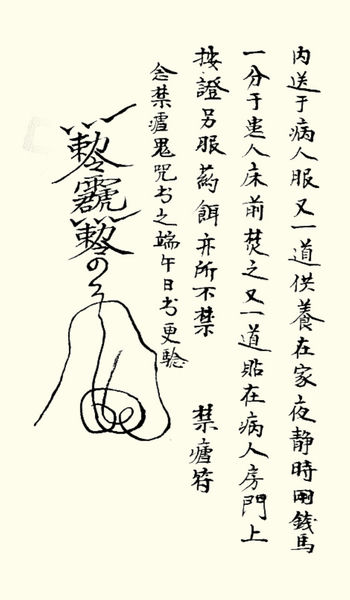 內送于病人服又一道供養在家夜靜時用錢馬
一分于患人床前焚之又一道貼在病人房門上
按證另服藥餌亦所不禁
禁瘧符
念禁瘧鬼咒書之端午日書更驗